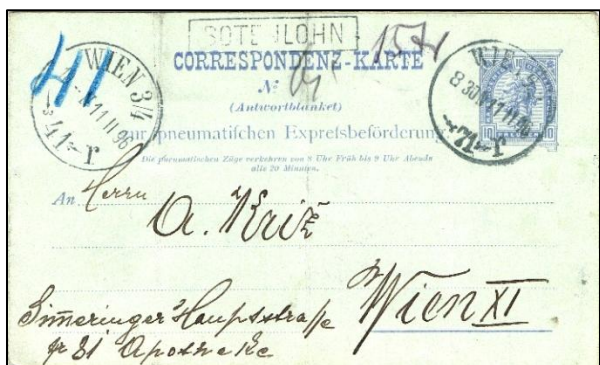 BOTENLOHN
41
1571
CORRESPONDENZ-KARTE
№
(Antwortblanket)
zur pneumatischen Expressbeförderung
Die pneumatischen Züge verkehren von 8 Uhr Früh bis 9 Uhr Abends
alle 20 Minuten.
WIEN 3/4
11 II 96
41
WIEN
8 30 V 11 II 96
10
An Herrn
A. Kriz
Wien XI
Simmeringer Hauptstrasse
81 Apotheke